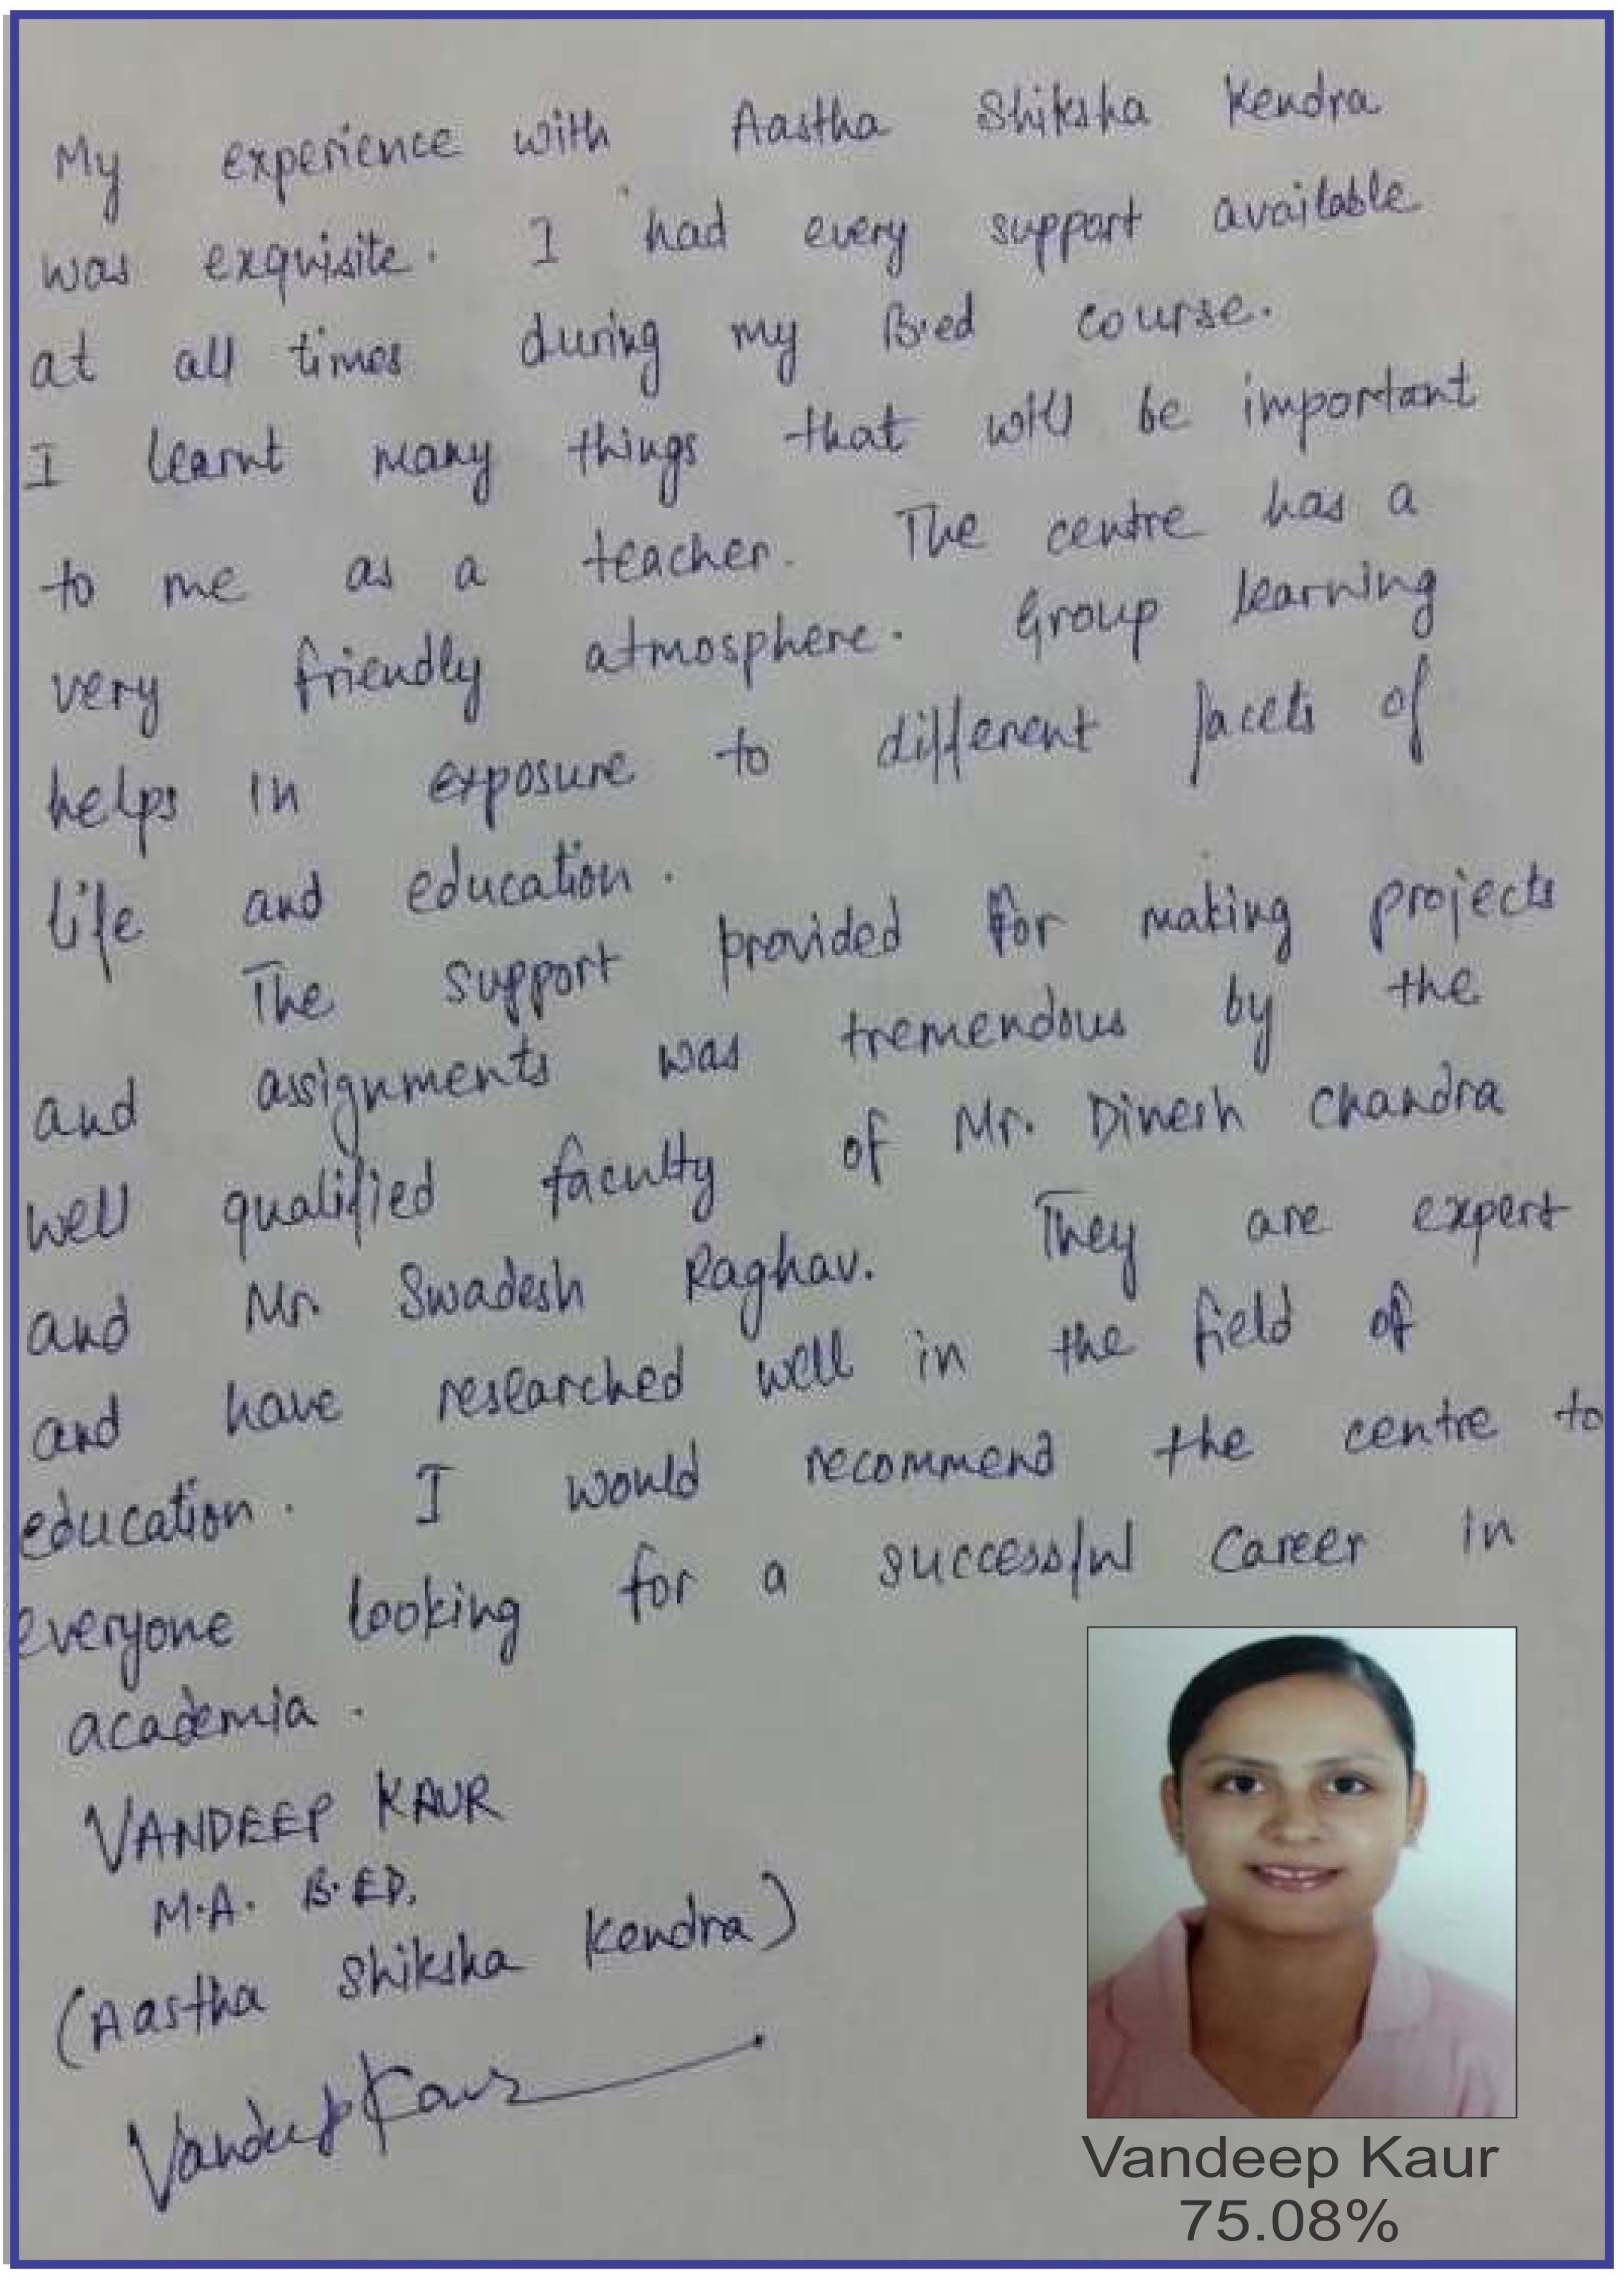 My experience with Aastha Shiksha Kendra
was exquisite. I had every support available
at all times during my B.ed course.
I learnt many things that will be important
to me as a teacher. The centre has a
very friendly atmosphere. Group learning
helps in exposure to different facets of
life and education.
The support provided for making projects
and assignments was tremendous by the
well qualified faculty of Mr. Dinesh Chandra
and Mr. Swadesh Raghav. They are expert
and have researched well in the field of
education. I would recommend the centre to
everyone looking for a successful career in
academia.
VANDEEP KAUR
M.A. B.ED.
(Aastha Shiksha Kendra)
Vandeep Kaur
Vandeep Kaur
75.08%